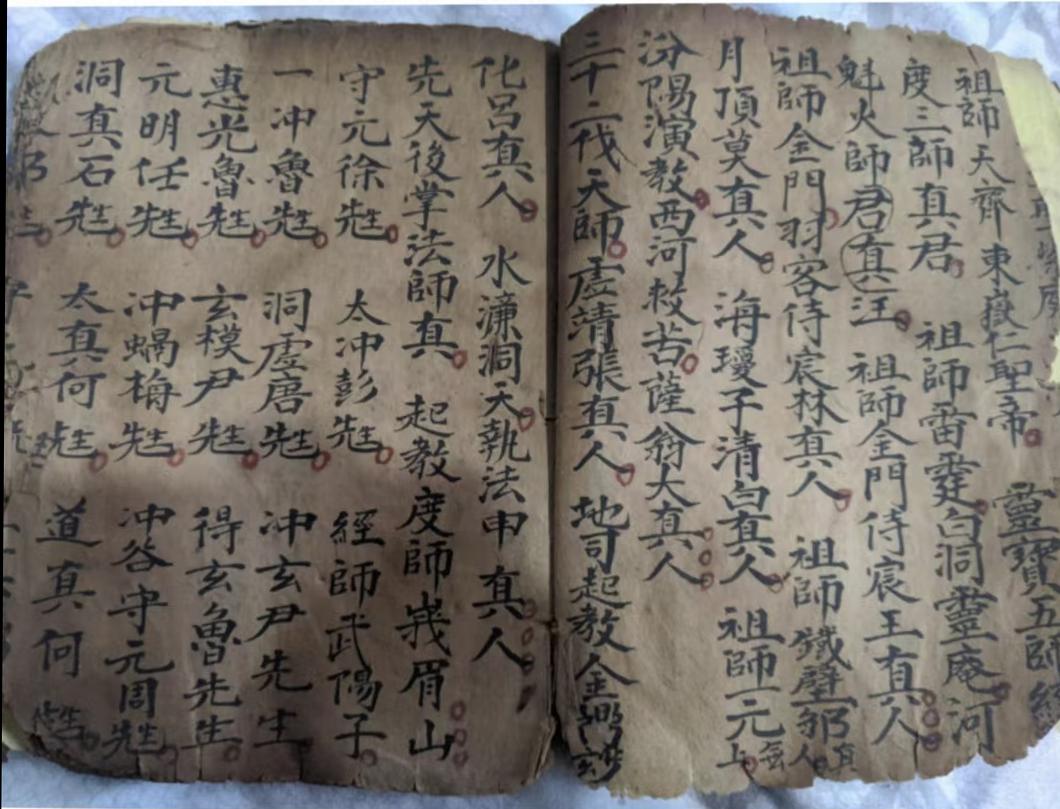 靈寶五師經
祖師天齊東嶽仁聖帝
度三師真君 祖師雷霆白洞靈庵河
魁火師君真汪 祖師金門侍宸王真人
祖師金門羽客侍宸林真人 祖師鐵壁鄒真人
月頂莫真人 海瓊子清白真人 祖師一元無上
汾陽演教西河救苦薩翁大真人
三十二代天師虛靖張真人 地司起教金鄉
化呂真人 水濂洞天執法申真人
先天後掌法師真 起教度師峩眉山
守元徐先生 太冲彭先生 經師武陽子
一冲魯先生 洞虛唐先生 冲玄尹先生
惠光魯先生 玄模尹先生 得玄魯先生
元明任先生 冲蝎梅先生 冲谷守元周先生
洞真石先生 太真何先生 道真何先生